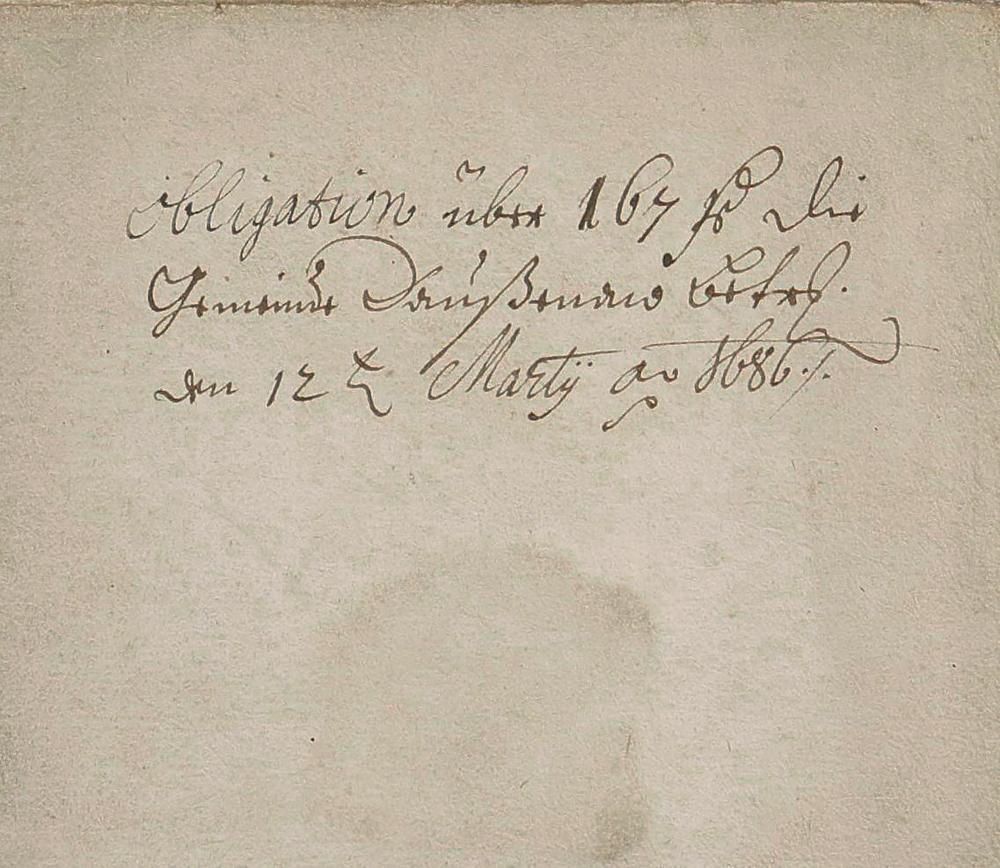 Obligation über 167 fl die
Gemeinde Daußenaw betrf.
den 12 t Martÿ ao 1686 ./.